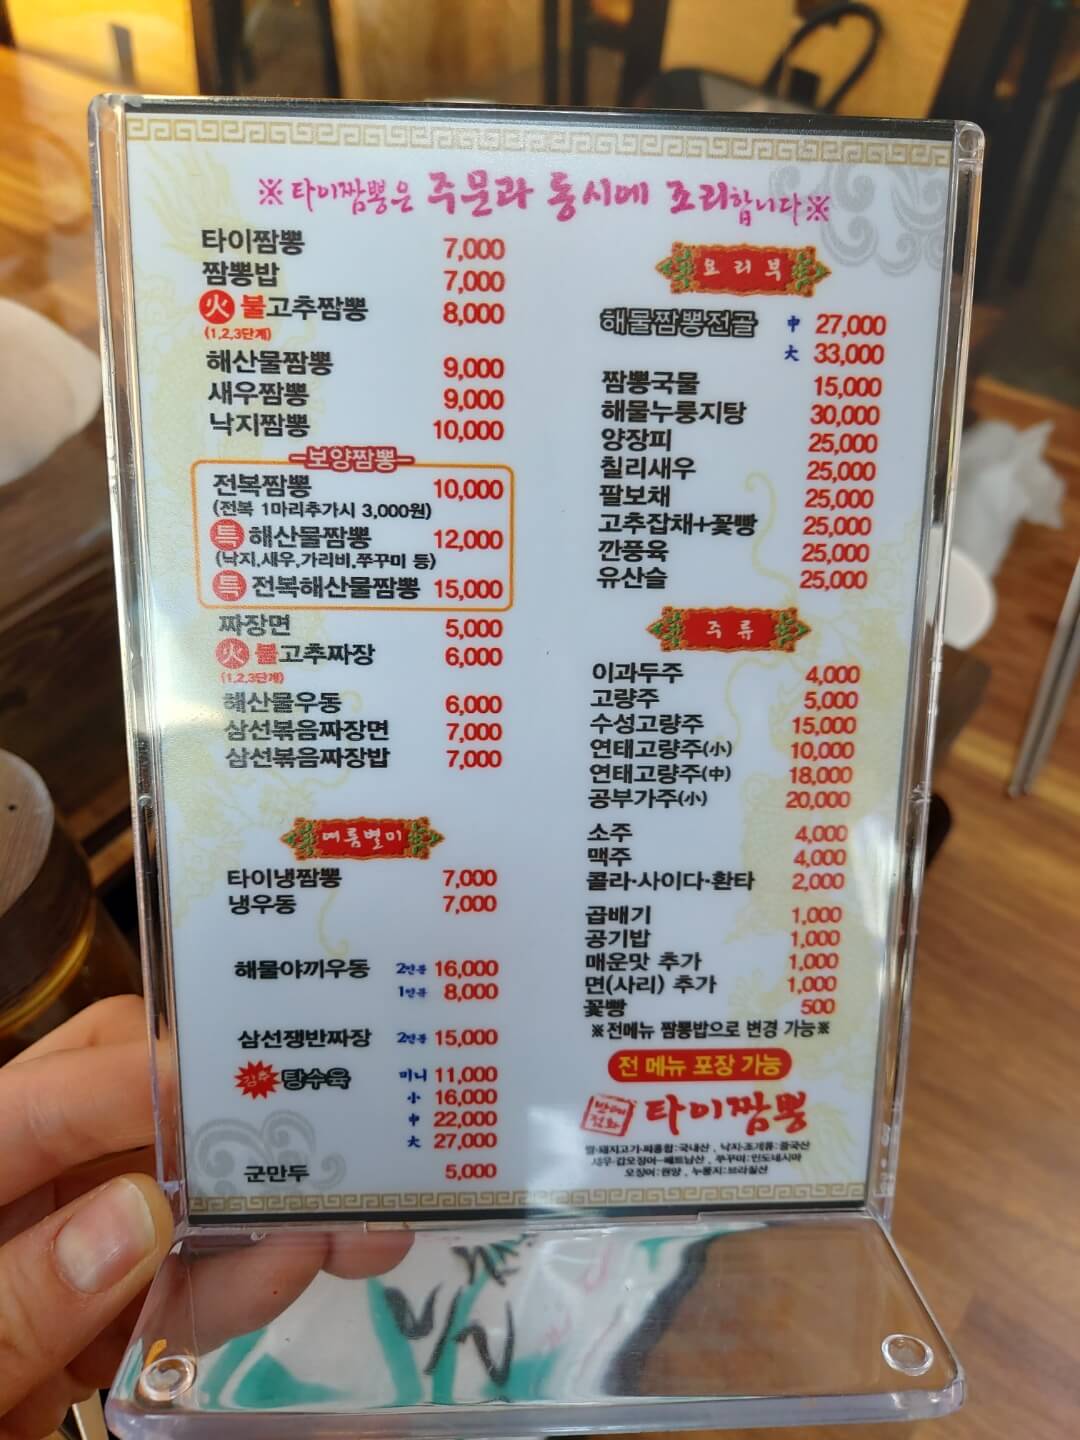 ※타이짬뽕은 주문과 동시에 조리합니다※
타이짬뽕 7,000
짬뽕밥 7,000
火 불고추짬뽕 8,000
(1,2,3단계)
해산물짬뽕 9,000
새우짬뽕 9,000
낙지짬뽕 10,000
보양짬뽕
전복짬뽕 10,000
(전복 1마리추가시 3,000원)
특 해산물짬뽕 12,000
(낙지,새우,가리비,쭈꾸미 등)
특 전복해산물짬뽕 15,000
짜장면 5,000
火 불고추짜장 6,000
(1,2,3단계)
해산물우동 6,000
삼선볶음짜장면 7,000
삼선볶음짜장밥 7,000
여름별미
타이냉짬뽕 7,000
냉우동 7,000
해물야끼우동 2인분 16,000
1인분 8,000
삼선쟁반짜장 2인분 15,000
탕수육 미니 11,000
小 16,000
中 22,000
大 27,000
군만두 5,000
요리부
해물짬뽕전골 中 27,000
大 33,000
짬뽕국물 15,000
해물누룽지탕 30,000
양장피 25,000
칠리새우 25,000
팔보채 25,000
고추잡채+꽃빵 25,000
깐풍육 25,000
유산슬 25,000
주류
이과두주 4,000
고량주 5,000
수성고량주 15,000
연태고량주(小) 10,000
연태고량주(中) 18,000
공부가주(小) 20,000
소주 4,000
맥주 4,000
콜라·사이다·환타 2,000
곱배기 1,000
공기밥 1,000
매운맛 추가 1,000
면(사리) 추가 1,000
꽃빵 500
※전메뉴 짬뽕밥으로 변경 가능※
전 메뉴 포장 가능
타이짬뽕
쌀·돼지고기·찌홍합:국내산 , 낙지·조개류:중국산
새우·갑오징어-베트남산 , 쭈꾸미:인도네시아
오징어:원양 , 누룽지:브라질산